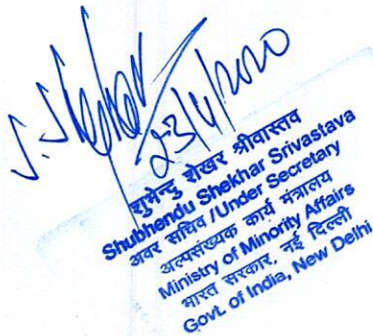 S. Shekhar
23/4/2020
शुभेन्दु शेखर श्रीवास्तव
Shubhendu Shekhar Srivastava
अवर सचिव / Under Secretary
अल्पसंख्यक कार्य मंत्रालय
Ministry of Minority Affairs
भारत सरकार, नई दिल्ली
Govt. of India, New Delhi